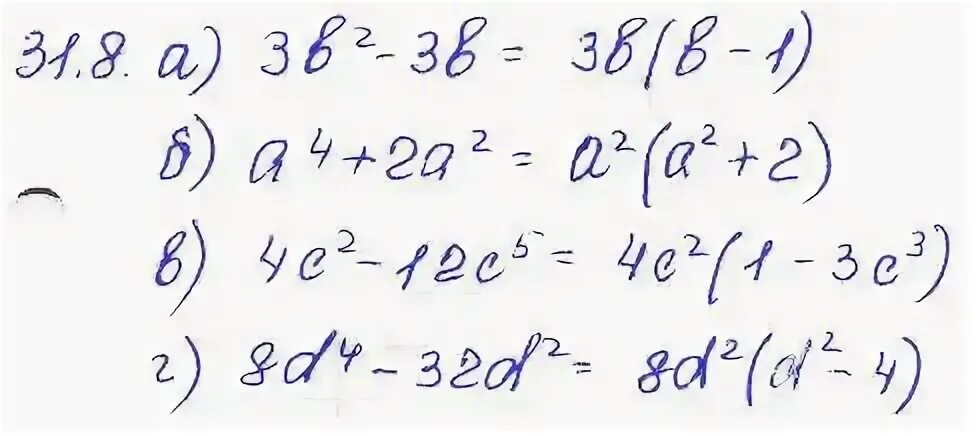 31.8. а) 3b² - 3b = 3b(b - 1)
б) a⁴ + 2a² = a²(a² + 2)
в) 4c² - 12c⁵ = 4c²(1 - 3c³)
г) 8d⁴ - 32d² = 8d²(d² - 4)